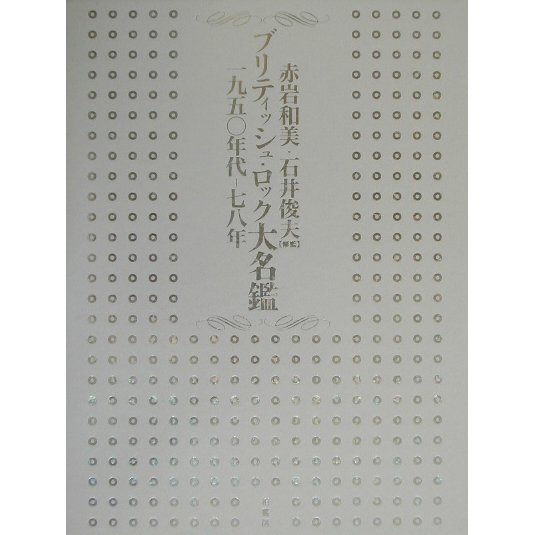 赤岩和美・石井俊夫[監修]
ブリティッシュ・ロック大名鑑
一九五〇年代-七八年